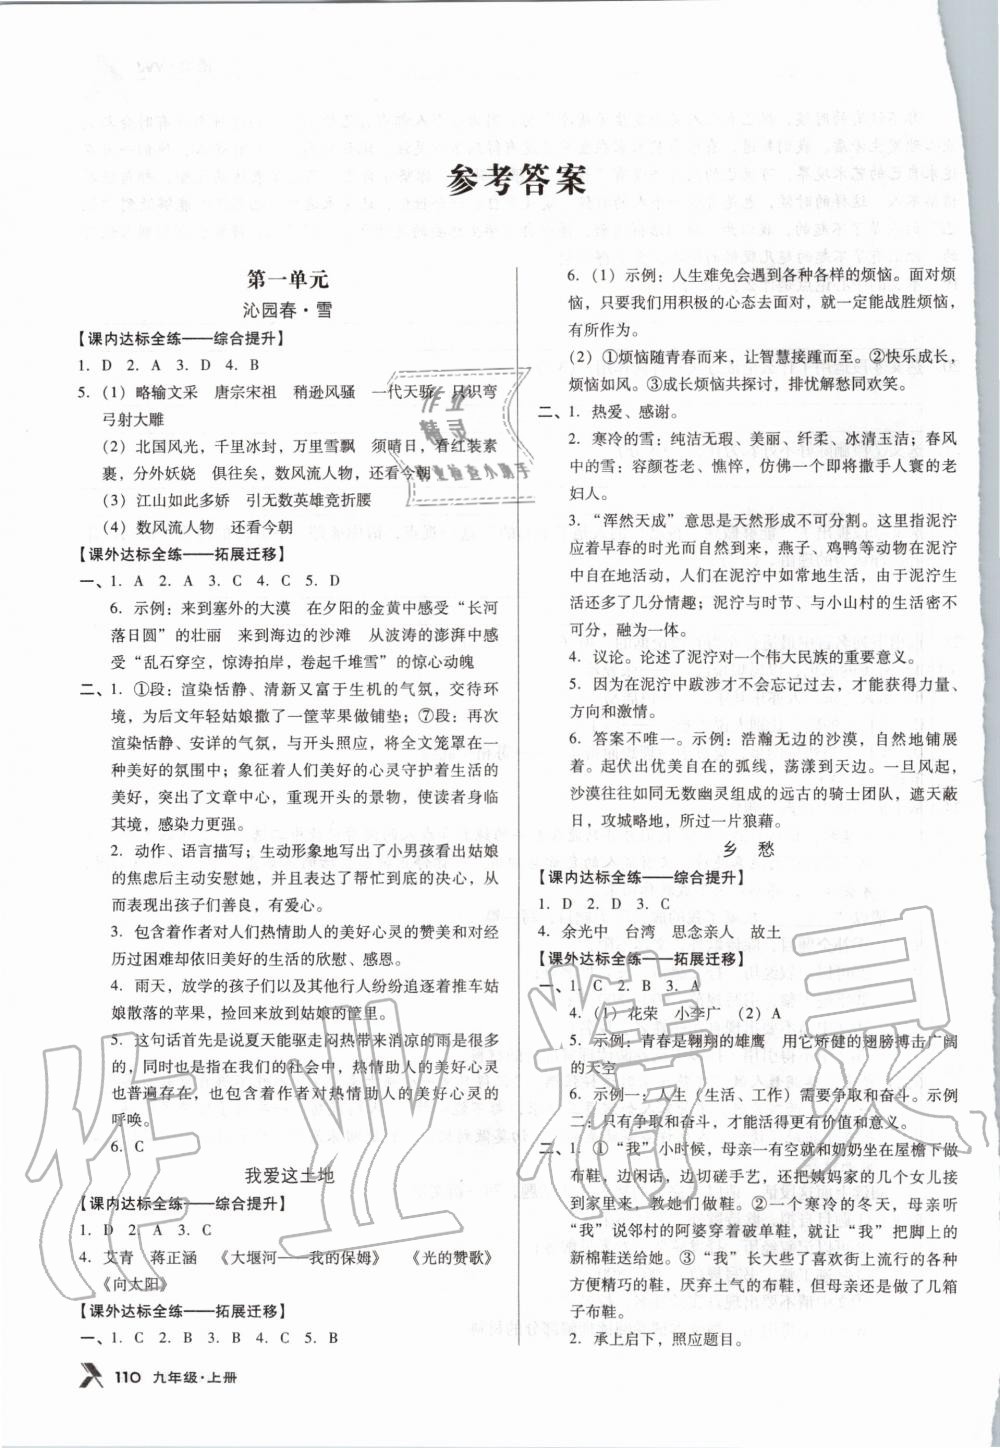 参考答案
第一单元
沁园春·雪
【课内达标全练——综合提升】
1. D 2. A 3. D 4. B
5. (1) 略输文采 唐宗宋祖 稍逊风骚 一代天骄 只识弯
弓射大雕
(2) 北国风光，千里冰封，万里雪飘 须晴日，看红装素
裹，分外妖娆 俱往矣，数风流人物，还看今朝
(3) 江山如此多娇 引无数英雄竞折腰
(4) 数风流人物 还看今朝
【课外达标全练——拓展迁移】
一、1. A 2. A 3. C 4. C 5. D
6. 示例：来到塞外的大漠 在夕阳的金黄中感受“长河
落日圆”的壮丽 来到海边的沙滩 从波涛的澎湃中感
受“乱石穿空，惊涛拍岸，卷起千堆雪”的惊心动魄
二、1. ①段：渲染恬静、清新又富于生机的气氛，交待环
境，为后文年轻姑娘撒了一筐苹果做铺垫；⑦段：再次
渲染恬静、安详的气氛，与开头照应，将全文笼罩在一
种美好的氛围中；象征着人们美好的心灵守护着生活的
美好，突出了文章中心，重现开头的景物，使读者身临
其境，感染力更强。
2. 动作、语言描写；生动形象地写出了小男孩看出姑娘
的焦虑后主动安慰她，并表达了帮忙到底的决心，也表
现出孩子们善良、有爱心。
3. 包含着作者对人们热情助人的美好心灵的赞美和对经
历过苦难却依旧美好的生活的欣慰、感恩。
4. 雨天，放学的孩子们以及其他行人纷纷追逐着推车姑
娘散落的苹果，捡回来放到姑娘的筐里。
5. 这句话首先是说夏天能驱走闷热带来清凉的雨是很多
的，同时也是指在我们的社会中，热情助人的美好心灵
也普遍存在，也包含着作者对热情助人的美好心灵的
呼唤。
6. C
我爱这土地
【课内达标全练——综合提升】
1. D 2. A 3. C
4. 艾青 蒋正涵 《大堰河——我的保姆》 《光的赞歌》
《向太阳》
【课外达标全练——拓展迁移】
一、1. C 2. B 3. C 4. D 5. B
6. (1) 示例：人生难免会遇到各种各样的烦恼。面对烦
恼，只要我们用积极的心态去面对，就一定能战胜烦恼，
有所作为。
(2) ①烦恼随青春而来，让智慧接踵而至。②快乐成长，
烦恼如风。③成长烦恼共探讨，排忧解愁同欢笑。
二、1. 热爱、感谢。
2. 寒冷的雪：纯洁无瑕、美丽、纤柔、冰清玉洁；春风
中的雪：容颜苍老、憔悴，仿佛一个即将撒手人寰的老
妇人。
3. “浑然天成”意思是天然形成不可分割。这里指泥泞
应着早春的时光而自然出现，燕子、鸡鸭等动物在泥泞
中自在地活动，人们在泥泞中如常地生活，因泥泞生
活还多了几分情趣；泥泞与时节、与小山村的生活密不
可分，融为一体。
4. 议论。论述了泥泞对一个伟大民族的重要意义。
5. 因为在泥泞中跋涉才不会忘记过去，才能获得力量、
方向和激情。
6. 答案不唯一。示例：浩瀚无边的沙漠，自然地铺展
着。起伏出优美自在的弧线，荡漾到天边。一旦风起，
沙漠往往有如无数幽灵组成的远古的骑士团队，遮天蔽
日，攻城略地，所过一片狼藉。
乡 愁
【课内达标全练——综合提升】
1. D 2. D 3. C
4. 余光中 台湾 思念亲人 故土
【课外达标全练——拓展迁移】
一、1. C 2. B 3. A
4. (1) 花荣 小李广 (2) A
5. 示例：青春是翱翔的雄鹰 用它矫健的翅膀搏击广阔
的天空
6. 示例一：人生（生活、工作）需要争取和奋斗。示例
二：只有争取和奋斗，才能活得更有价值和意义。
二、1. ①“我”小时候，母亲一有空就和奶奶坐在屋檐下做
布鞋，边闲话，边切磋手艺，还把姨妈家的几个女儿接
到家里来，教她们做鞋。②一个寒冷的冬天，母亲听
“我”说邻村的阿婆穿着破单鞋，就让“我”把脚上的
新棉鞋送给她。③“我”长大些了喜欢街上流行的各种
方便精巧的鞋，厌弃土气的布鞋，但母亲还是做了几箱
子布鞋。
2. 承上启下，照应题目。
110 九年级·上册
作业精灵
作业
精灵
作业检查小助手